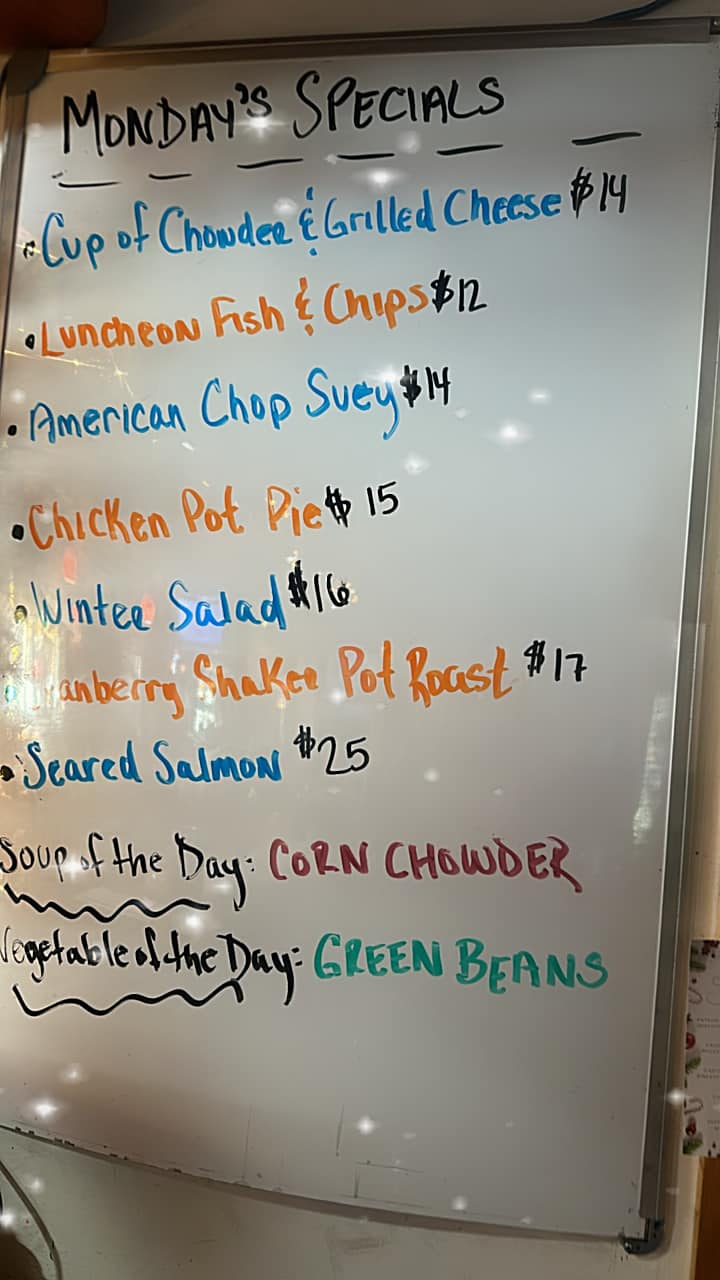 Monday's Specials
• Cup of Chowder & Grilled Cheese $14
• Luncheon Fish & Chips $12
• American Chop Suey $14
• Chicken Pot Pie $15
• Winter Salad $16
Cranberry Shaker Pot Roast $17
• Seared Salmon $25
Soup of the Day: CORN CHOWDER
Vegetable of the Day: GREEN BEANS